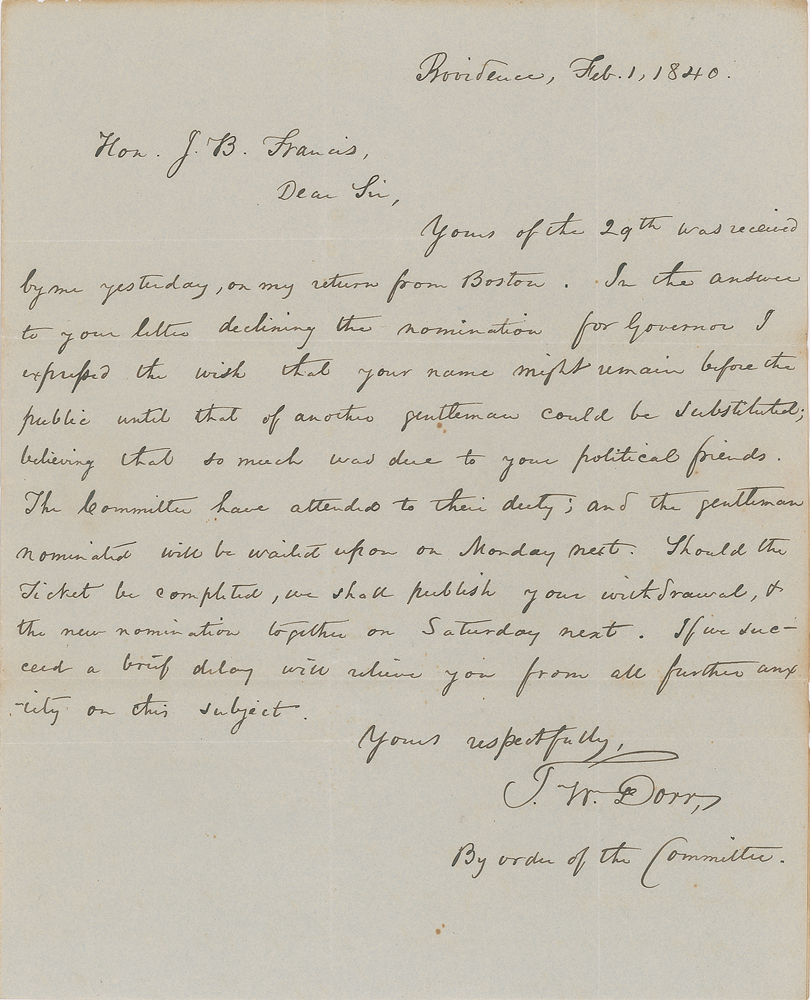 Providence, Feb. 1, 1840.
Hon. J. B. Francis,
Dear Sir,
Yours of the 29th was received
by me yesterday, on my return from Boston. In the answer
to your letter declining the nomination for Governor I
expressed the wish that your name might remain before the
public until that of another gentleman could be substituted;
believing that so much was due to your political friends.
The Committee have attended to their duty; and the gentleman
nominated will be waited upon on Monday next. Should the
Ticket be completed, we shall publish your withdrawal, &
the new nomination together on Saturday next. If we suc-
ceed a brief delay will relieve you from all further anx
-iety on this subject.
Yours respectfully,
T. W. Dorr,
By order of the Committee.